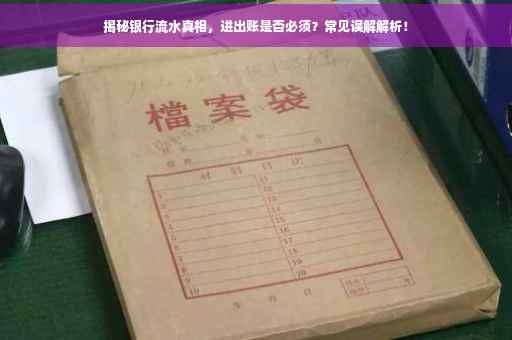 揭秘银行流水真相，进出账是否必须？常见误解解析！
檔案袋
材料目次
1 11
2 12
3 13
4 14
5 15
6 16
7 17
8 18
9 19
10 20
年 月 日